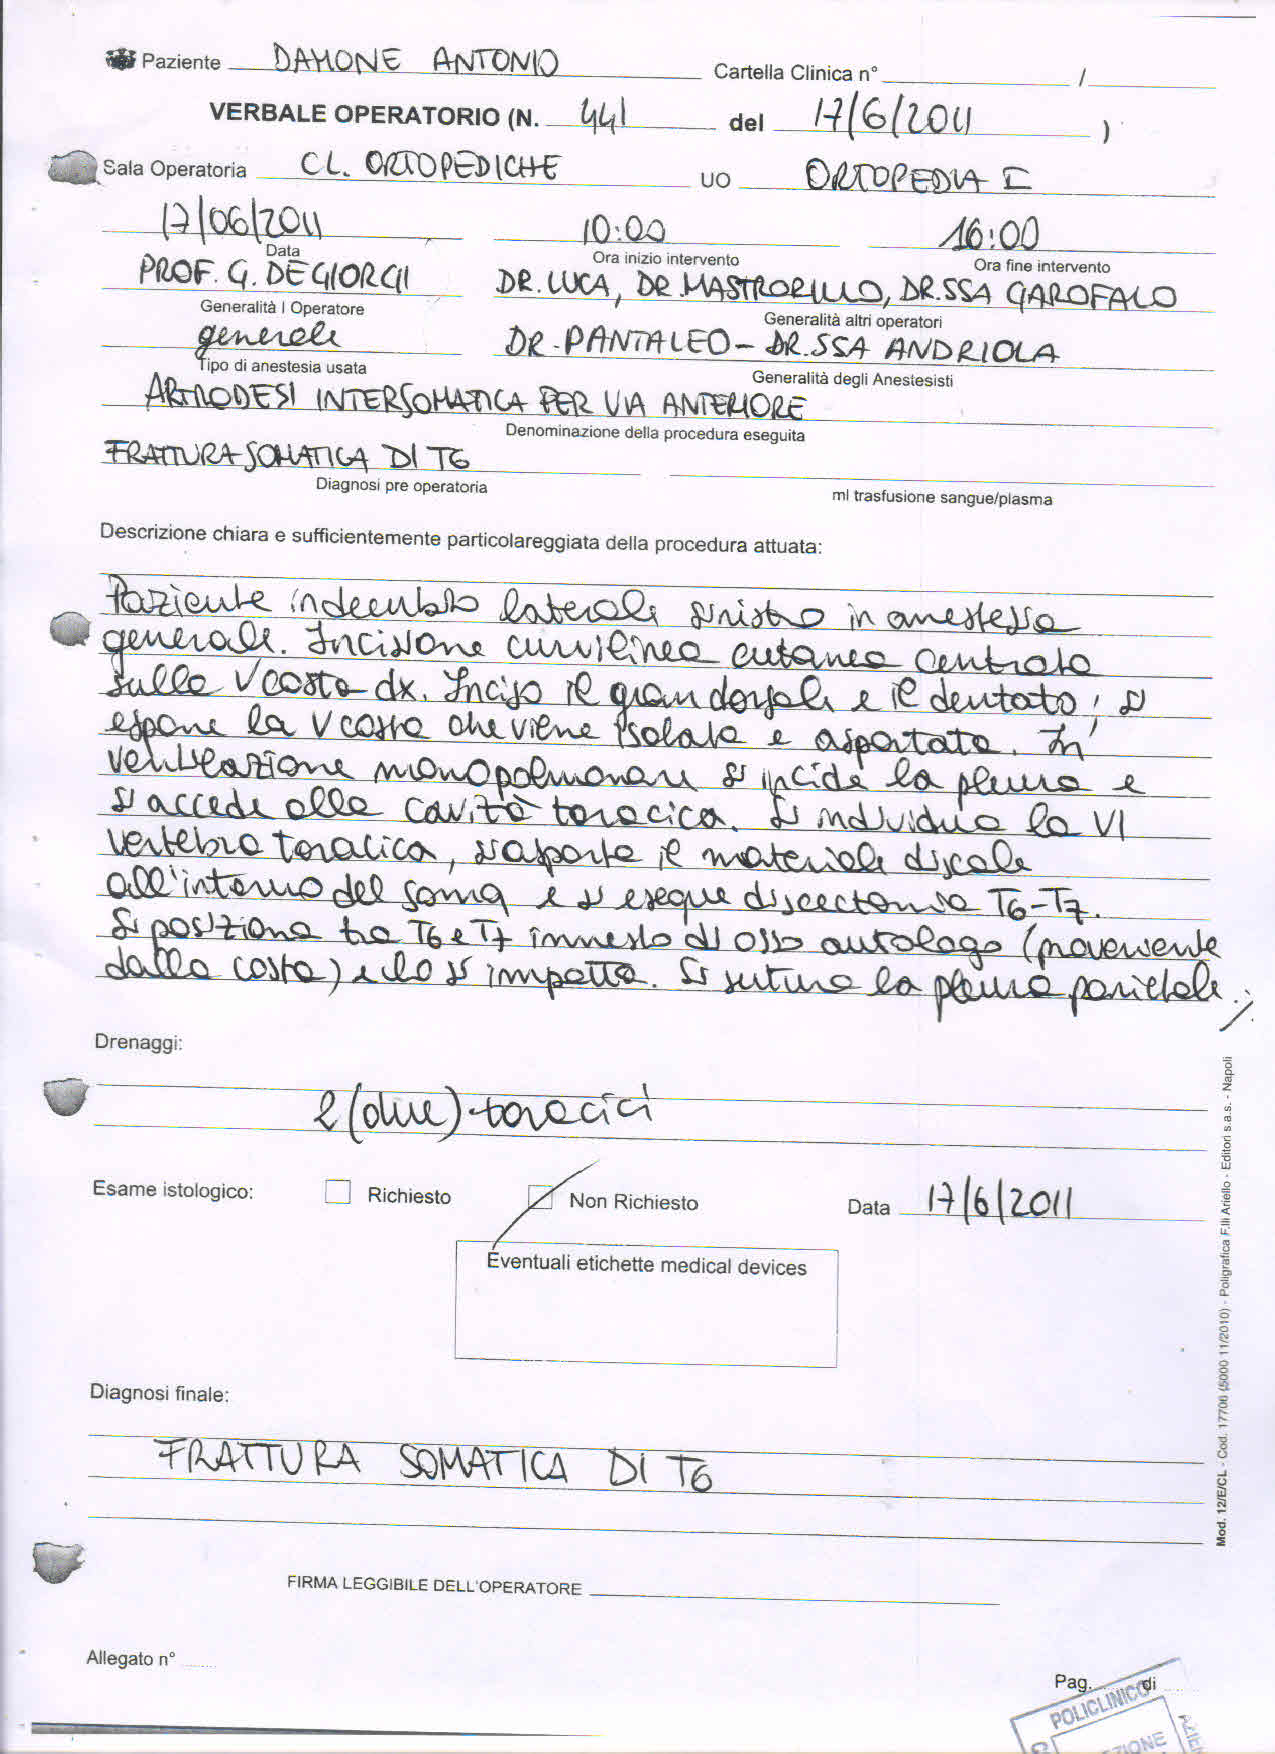 Paziente DAMONE ANTONIO Cartella Clinica n° /
VERBALE OPERATORIO (N. 441 del 17/6/2011 )
Sala Operatoria CL. ORTOPEDICHE UO ORTOPEDIA I
17/06/2011 10:00 16:00
Data Ora inizio intervento Ora fine intervento
PROF. G. DE GIORGI DR. LUCA, DR. MASTRORILLO, DR.SSA GAROFALO
Generalità I Operatore Generalità altri operatori
generale DR. PANTALEO - DR.SSA ANDRIOLA
Tipo di anestesia usata Generalità degli Anestesisti
ARTRODESI INTERSOMATICA PER VIA ANTERIORE
Denominazione della procedura eseguita
FRATTURA SOMATICA DI T6
Diagnosi pre operatoria ml trasfusione sangue/plasma
Descrizione chiara e sufficientemente particolareggiata della procedura attuata:
Paziente in decubito laterale sinistro in anestesia
generale. Incisione curvilinea cutanea centrata
sulla V costa dx. Inciso il gran dorsale e il dentato, si
espone la V costa che viene isolata e asportata. In
ventilazione monopolmonare si incide la pleura e
si accede alla cavità toracica. Si individua la VI
vertebra toracica, si asporta il materiale discale
all'interno del soma e si esegue discectomia T6-T7.
Si posiziona tra T6 e T7 innesto di osso autologo (proveniente
dalla costa) e lo si impatta. Si sutura la pleura parietale.
Drenaggi:
2 (due) toracici
Esame istologico: Richiesto Non Richiesto Data 17/6/2011
Eventuali etichette medical devices
Diagnosi finale:
FRATTURA SOMATICA DI T6
FIRMA LEGGIBILE DELL'OPERATORE
Allegato n°
Pag. di
POLICLINICO
Mod. 12/E/CL - Cod. 17706 (5000 11/2010) - Poligrafica F.lli Ariello - Editori s.a.s. - Napoli